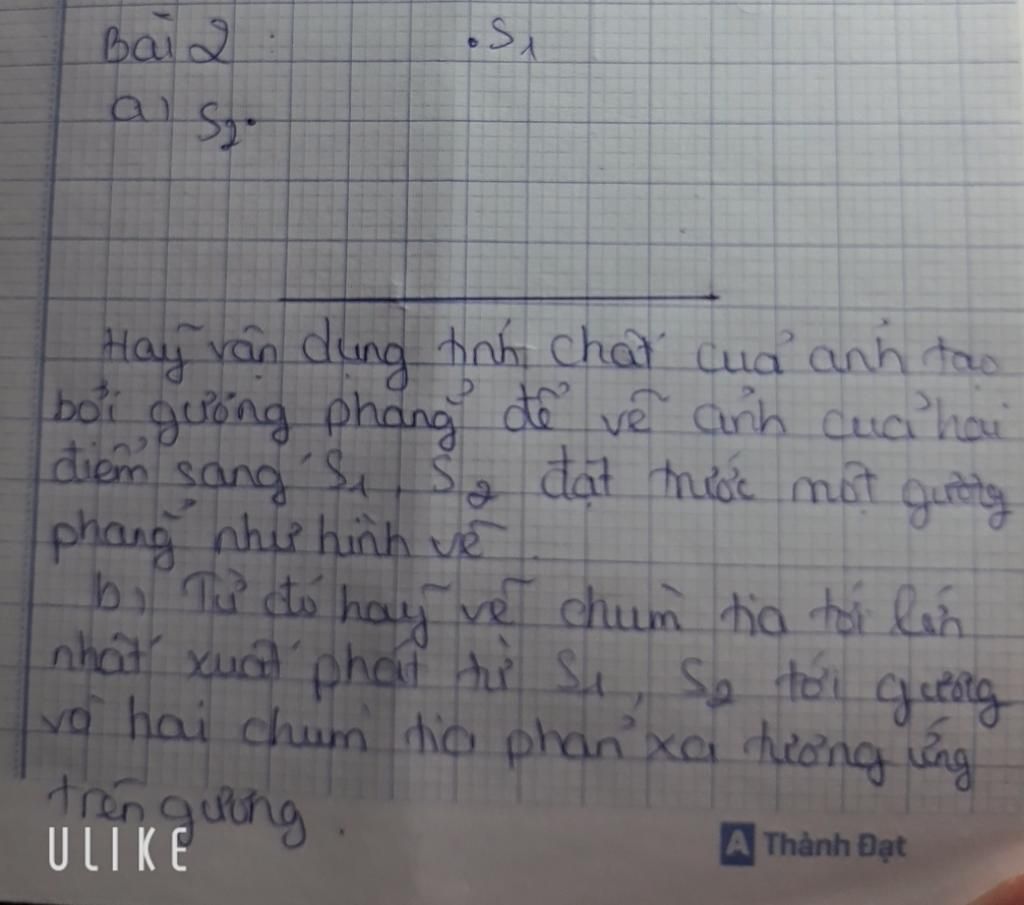 Bài 2 :
.S1
a) S2.
Hãy vận dụng tính chất của ảnh tạo
bởi gương phẳng để vẽ ảnh của hai
điểm sáng S1, S2 đặt trước một gương
phẳng như hình vẽ.
b) Từ đó hãy vẽ chùm tia tới lớn
nhất xuất phát từ S1, S2 tới gương
và hai chùm tia phản xạ tương ứng
trên gương.
ULIKE
A Thành Đạt